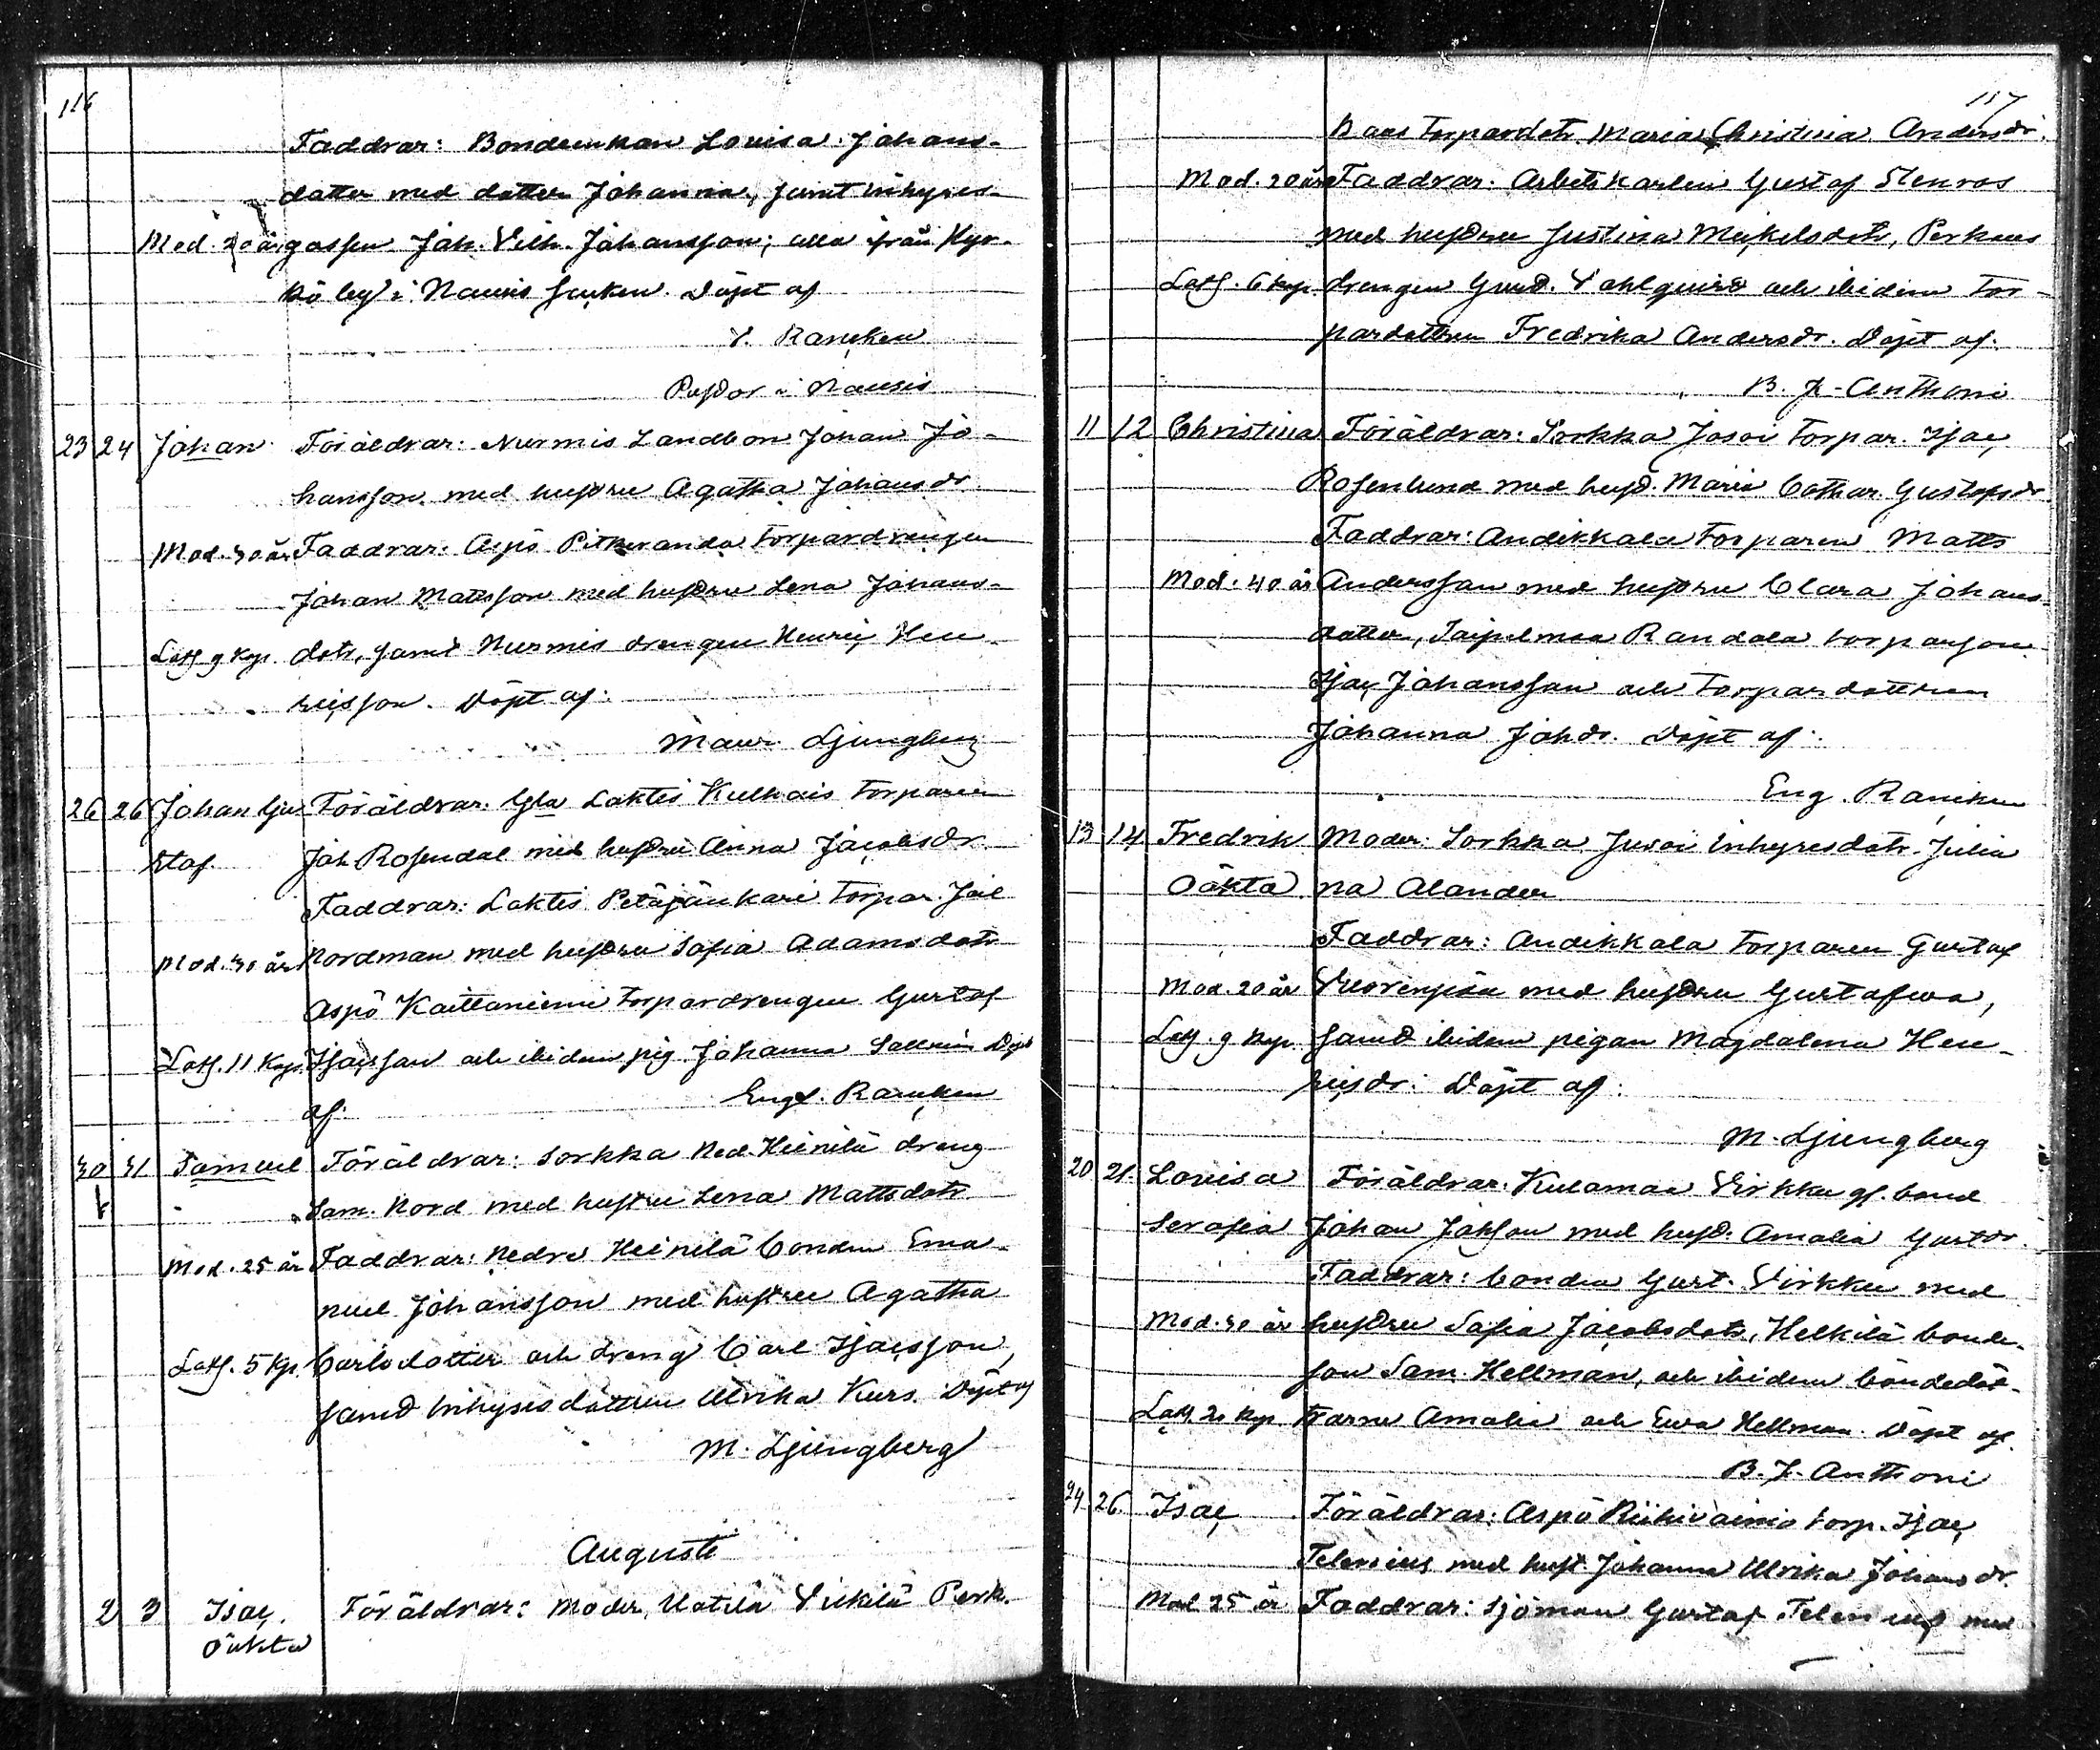 116
Faddrar: Bondeenkan Lovisa Johans-
dotter med dotter Johanna, samt inhyses-
Mod. 20 år gossen Joh. Vilh. Johansson; alla från Kyr-
kö by i Nousis socken. Döpt af
V. Rancken
Pastor i Nousis
23 24 Johan Föräldrar: Nurmis Landbon Johan Jo-
hansson med hustru Agatha Johansdr
Mod. 30 år Faddrar: Aspö Pitkeranda torpardrengen
Johan Mattsson med hustru Lena Johans-
Lösf. 9 Kop. dotr, samt Nurmis drengen Henric Hen-
ricsson. Döpt af:
Maur. Ljungberg
26 26 Johan Gu- Föräldrar: Gla Laktis Kulhais torparen
staf Joh Rosendal med hustru Anna Jacobsdr.
Faddrar: Laktis Petäjänkari torpar. Joh
Mod. 30 år Nordman med hustru Sofia Adamsdotr
Aspö Kaittaniemi torpardrengen Gustaf
Lösf. 11 Kop. Isacsson och ibidem pig. Johanna Döpt
af: Eug. Rancken
30 31 Samuel Föräldrar: Sorkka Ned. Heinilä dreng
Sam. Nord med hustru Lena Mattsdotr.
Mod. 25 år Faddrar: Nedre Heinilä bonden Ema-
nuel Johansson med hustru Agatha
Lösf. 5 Kop. Carlsdotter och dreng Carl Isacsson,
samt inhysesdottren Ulrika Kurs. Döpt af
M. Ljungberg
Augusti
2 3 Isac. Föräldrar: Moder, Uotila Perk.
oäkta
117
Baas torpardotr. Maria Christina Andersdr.
Mod. 20 år Faddrar: Arbetskarlen Gustaf Stenros
med hustru Justina Mickelsdotr, Perkaus
Lösf. 6 kop. drengen Gust. Vahlquist och ibidem tor-
pardottren Fredrika Andersdr. Döpt af:
B. J. Anthoni
11 12 Christina Föräldrar: Sorkka torpar. Isac
Rosenlund med hust. Maria Cathar. Gustafsdr
Faddrar: Andikkala torparen Matts
Mod. 40 år Andersson med hustru Clara Johans-
dotter, Taipelmaa Randala torparson
Isac Johansson och torpardottren
Johanna Johdr. Döpt af:
Eug. Rancken
13 14 Fredrik Moder: Sorkka inhysesdotr. Julia
Oäkta na Alander
Faddrar: Andikkala torparen Gustaf
Mod. 20 år Vuorenpää med hustru Gustafwa,
Lösf. 9 kop. samt ibidem pigan Magdalena Hen-
ricsdr: Döpt af:
M. Ljungberg
20 21. Lovisa Föräldrar: Kulamaa Virkku gf. bond
Serafia Johan Johsson med hust. Amalia Gustdr.
Faddrar: bonden Gust. Virkku med
Mod. 30 år hustru Sofia Jacobsdotr, Heikilä bonde-
son Sam. Hellman, och ibidem böndedöt-
Lösf 20 kop. trarne Amalia och Eva Hellman. Döpt af.
B. J. Anthoni
24 26 Isac Föräldrar: Aspö Riihivainio torp. Isac
Telenius med hust. Johanna Ulrika Johansdr.
Mod 25 år Faddrar: Sjöman Gustaf Telenius med